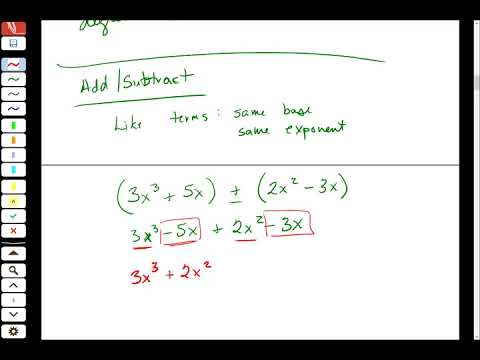 Add/Subtract
Like terms: same base
same exponent
(3x³ + 5x) ± (2x² - 3x)
3x³ - 5x + 2x² - 3x
3x³ + 2x²